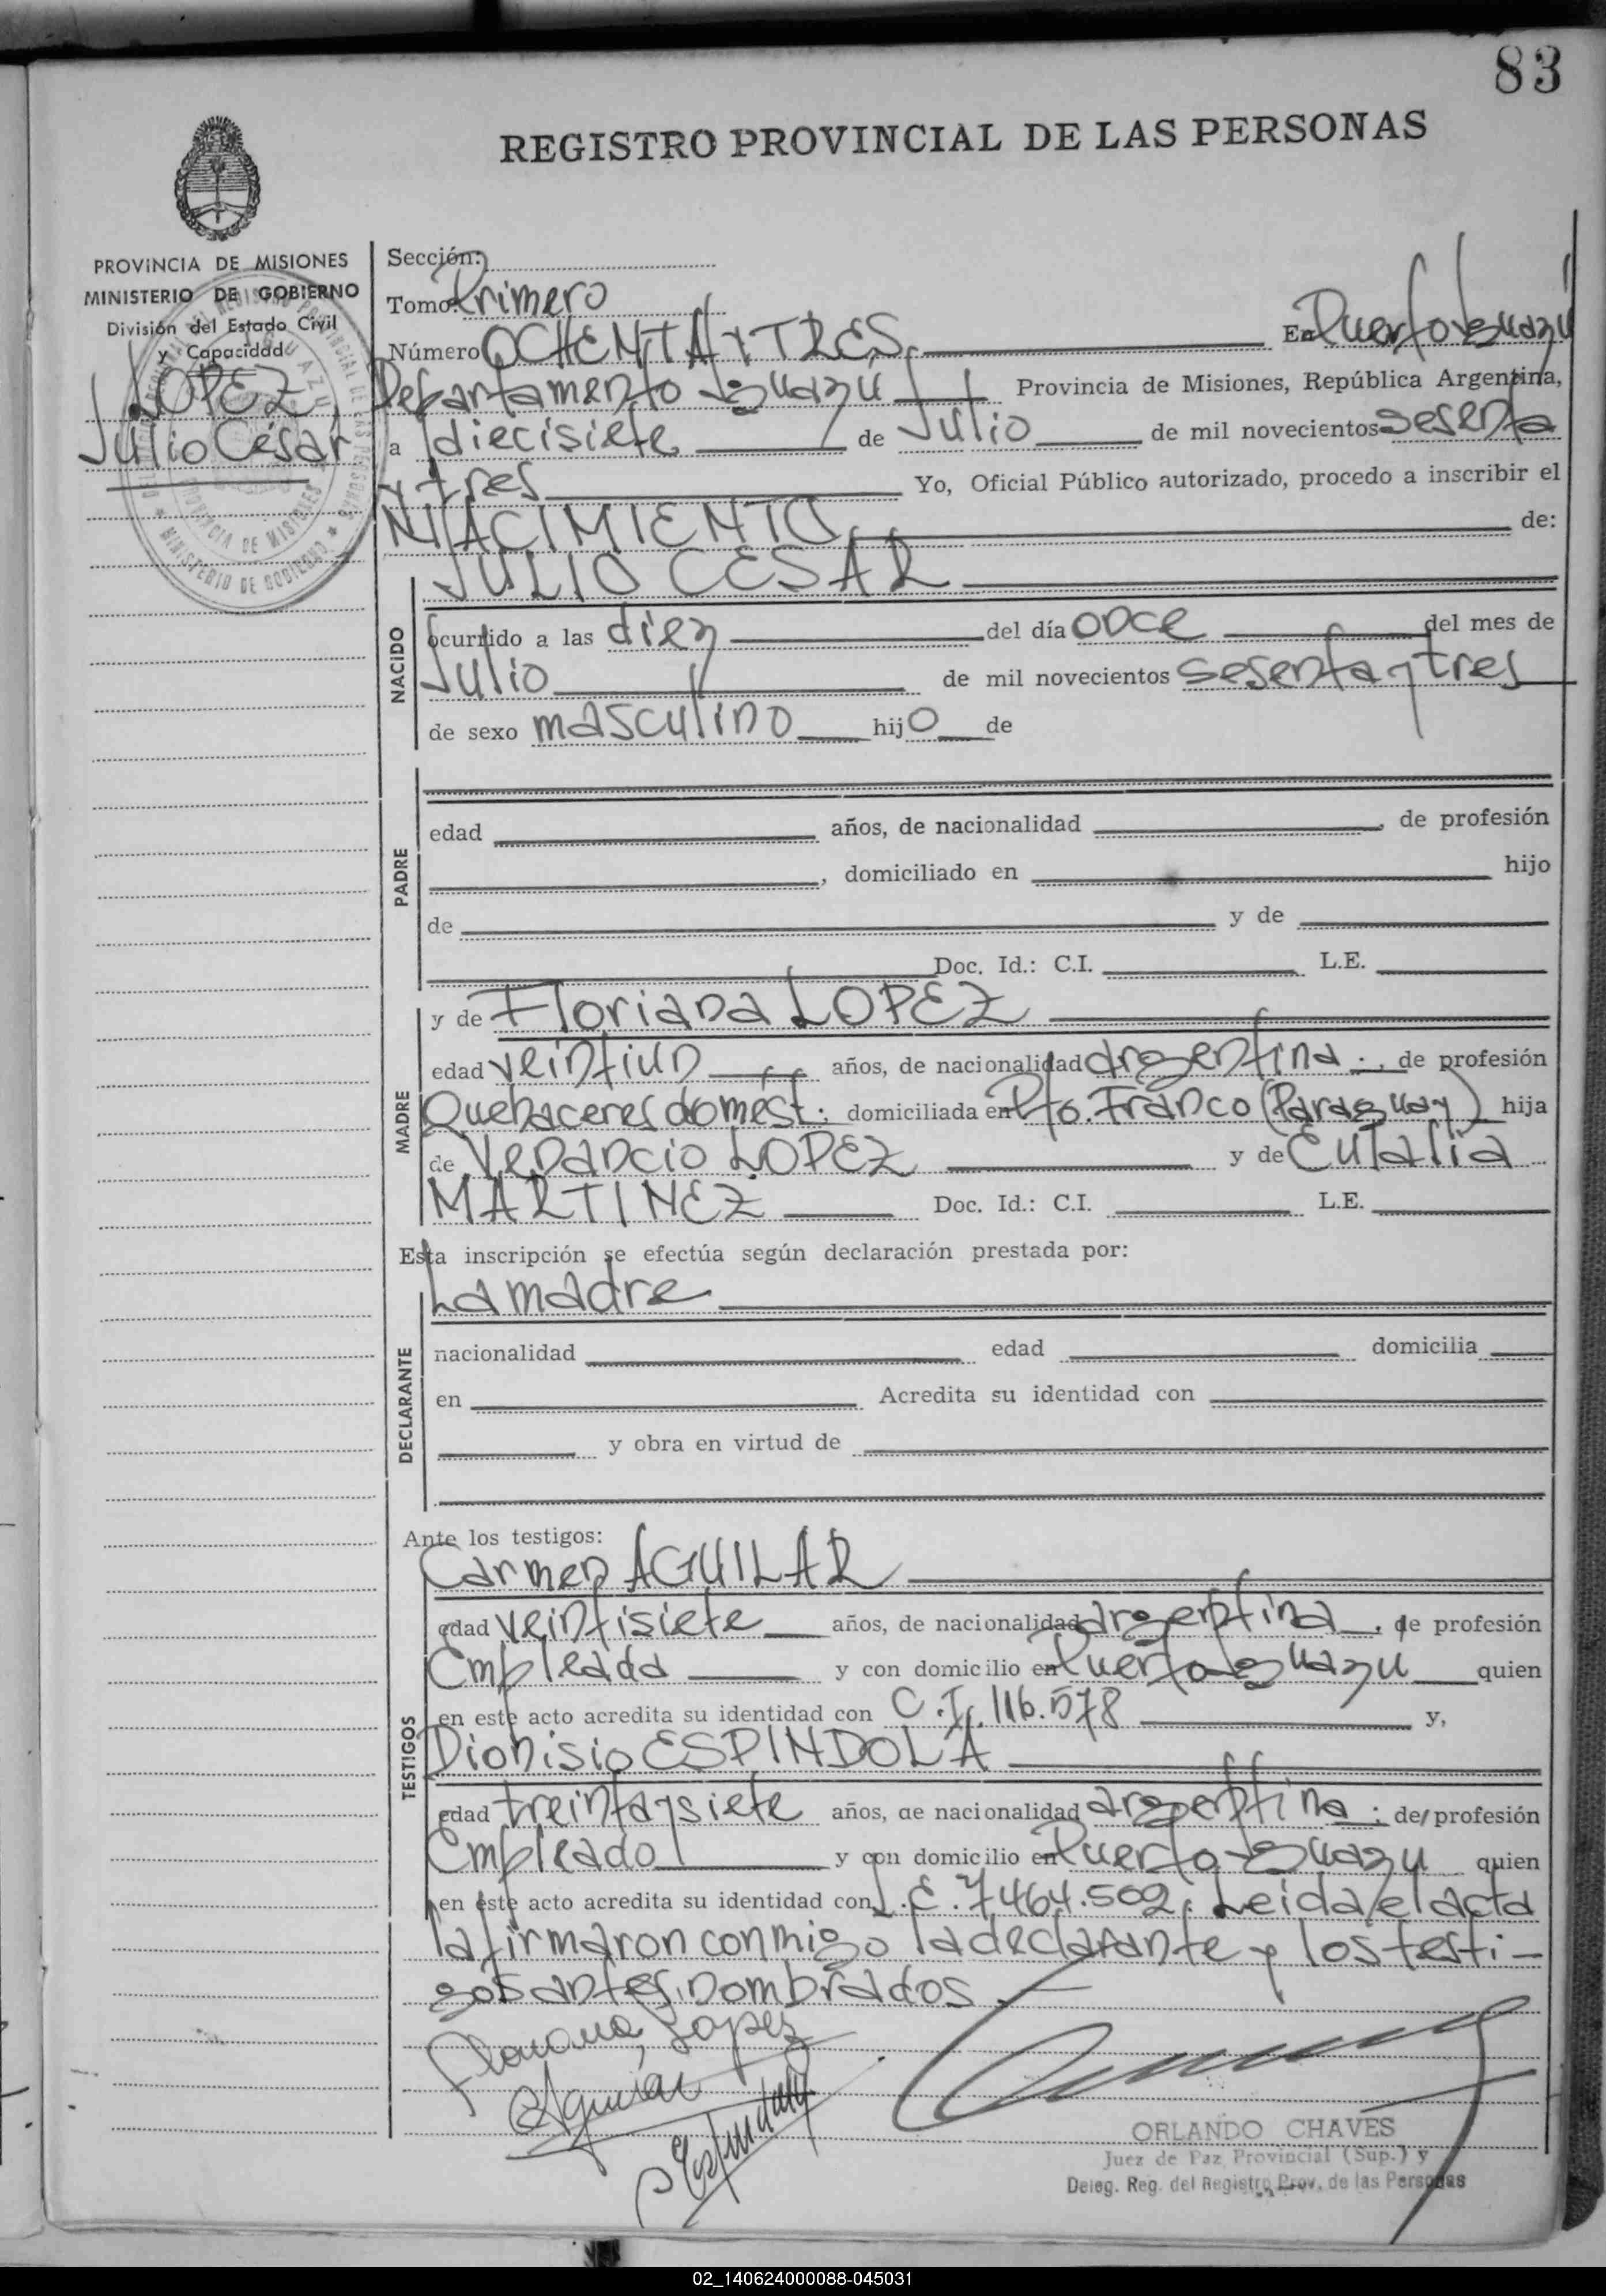 83
REGISTRO PROVINCIAL DE LAS PERSONAS
PROVINCIA DE MISIONES
MINISTERIO DE GOBIERNO
División del Estado Civil
y Capacidad
LOPEZ,
Julio César
Sección:
Tomo: Primero
Número OCHENTA Y TRES. En Puerto Iguazú
Departamento Iguazú Provincia de Misiones, República Argentina,
a diecisiete de Julio de mil novecientos sesenta
y tres Yo, Oficial Público autorizado, procedo a inscribir el
NACIMIENTO de:
JULIO CESAR
NACIDO
ocurrido a las diez del día once del mes de
Julio de mil novecientos sesenta y tres
de sexo masculino hijo de
PADRE
edad años, de nacionalidad , de profesión
, domiciliado en hijo
de y de
Doc. Id.: C.I. L.E.
MADRE
y de Floriana LOPEZ
edad veintiun años, de nacionalidad argentina . de profesión
Quehaceres domést: domiciliada en Pto. Franco (Paraguay) hija
de Venancio LOPEZ y de Eulalia
MARTINEZ Doc. Id.: C.I. L.E.
Esta inscripción se efectúa según declaración prestada por:
DECLARANTE
La madre
nacionalidad edad domicilia
en Acredita su identidad con
y obra en virtud de
Ante los testigos:
TESTIGOS
Carmen AGUILAR
edad veintisiete años, de nacionalidad argentina , de profesión
Empleada y con domicilio en Puerto Iguazu quien
en este acto acredita su identidad con C.I. 116.578 y,
Dionisio ESPINDOLA
edad treinta y siete años, de nacionalidad argentina : de profesión
Empleado y con domicilio en Puerto Iguazu quien
en este acto acredita su identidad con L.E. 7.464.502. Leida el acta
la firmaron conmigo la declarante y los testi-
gos antes nombrados.
Floriana Lopez
CAguilar
DEspindola
ORLANDO CHAVES
Juez de Paz Provincial (Sup.) y
Deleg. Reg. del Registro Prov. de las Personas
02_140624000088-045031